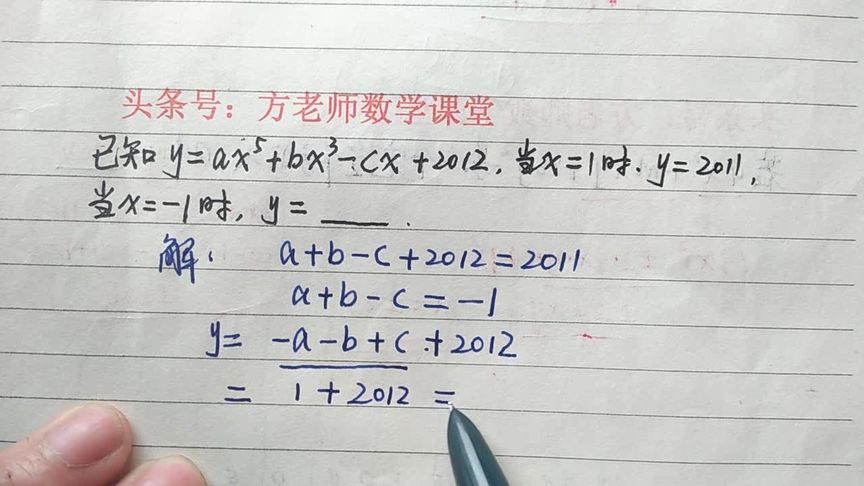 头条号：方老师数学课堂
已知 y=ax⁵+bx³-cx+2012, 当x=1时. y=2011,
当x=-1时, y=____.
解: a+b-c+2012=2011
a+b-c=-1
y= -a-b+c+2012
= 1+2012 =